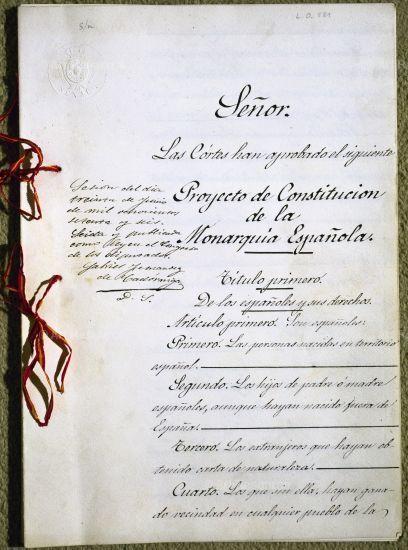 S/n
L.D. 581
Señor.
Las Córtes han aprobado el siguiente
Proyecto de Constitucion
de la
Monarquía Española.
Sesión del día
treinta de Junio
de mil ochocientos
setenta y seis
Leida y publicada
como Ley en el Congreso
de los Diputados
D. S.
Título primero.
De los españoles y sus derechos.
Artículo primero. Son españoles:
Primero. Las personas nacidas en territorio
español.
Segundo. Los hijos de padre ó madre
españoles, aunque hayan nacido fuera de
España.
Tercero. Los extranjeros que hayan ob-
tenido carta de naturaleza.
Cuarto. Los que sin ella, hayan gana-
do vecindad en cualquier pueblo de la